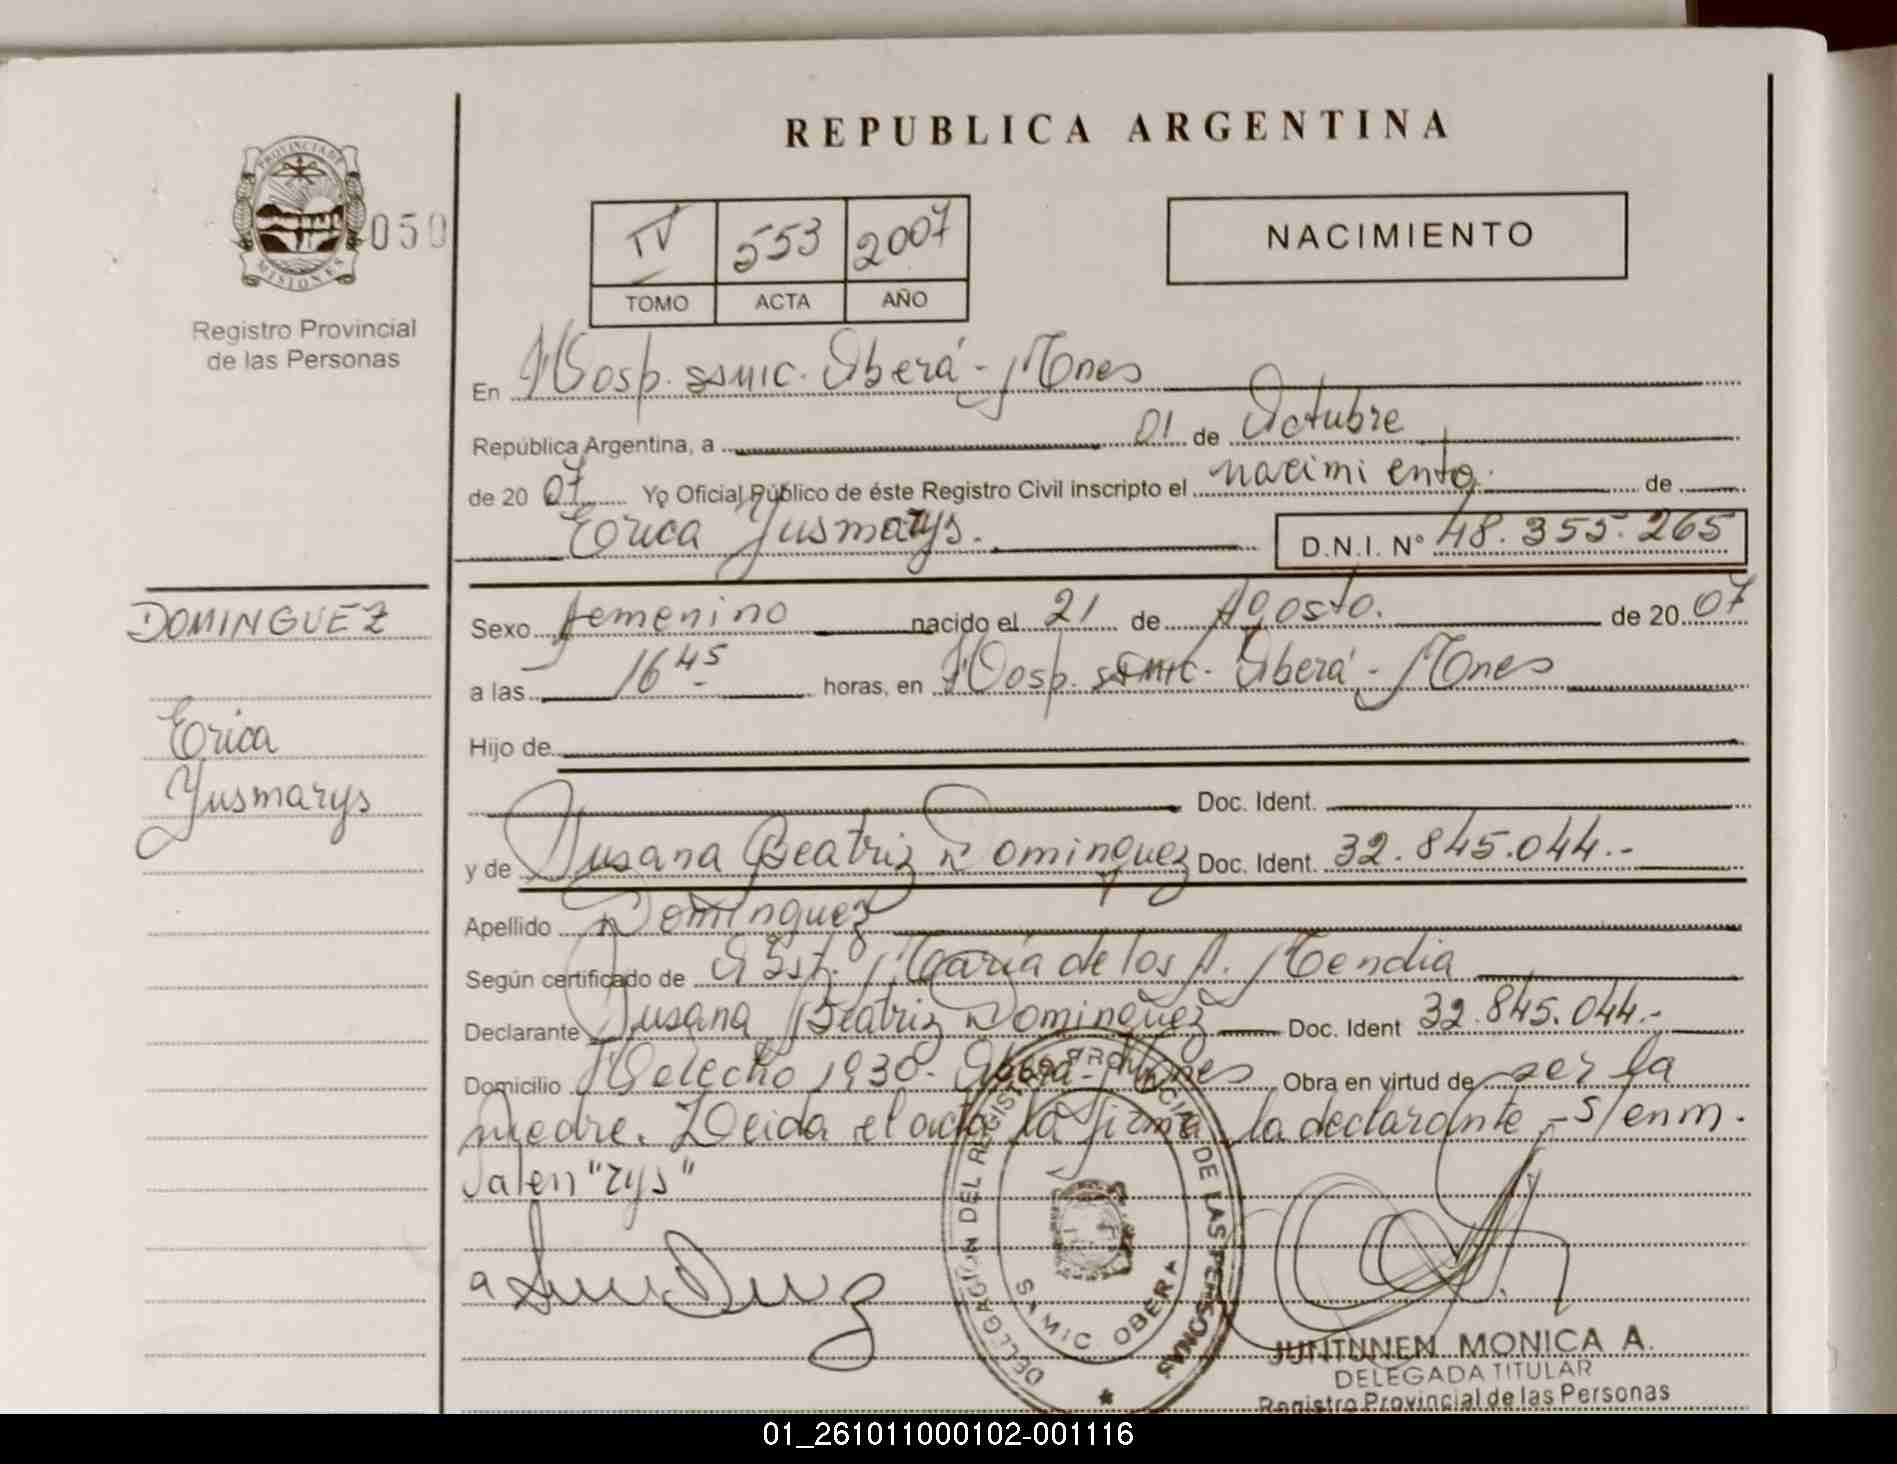 REPUBLICA ARGENTINA
PROVINCIA DE
MISIONES
050
Registro Provincial
de las Personas
IV 553 2007
TOMO ACTA AÑO
NACIMIENTO
En Hosp. SAMIC. Oberá - Mnes
República Argentina, a 01 de Octubre
de 20 07 Yo Oficial Público de éste Registro Civil inscripto el nacimiento de
Erica Yusmarys. D.N.I. N° 48.355.265
DOMINGUEZ
Erica
Yusmarys
Sexo femenino nacido el 21 de Agosto. de 20 07
a las 16 45 horas, en Hosp. SAMIC. Oberá - Mnes
Hijo de
Doc. Ident.
y de Susana Beatriz Dominguez Doc. Ident. 32.845.044.-
Apellido Dominguez
Según certificado de Obst. María de los A. Mendia
Declarante Susana Beatriz Dominguez Doc. Ident 32.845.044.-
Domicilio Helecho 1930- Oberá - Mnes Obra en virtud de ser la
madre. Leida el acta la firma la declarante - S/enm.
valen "rys"
DELEGACION DEL REGISTRO PROVINCIAL DE LAS PERSONAS
SAMIC OBERA
JUNTUNEN MONICA A.
DELEGADA TITULAR
Registro Provincial de las Personas
01_261011000102-001116